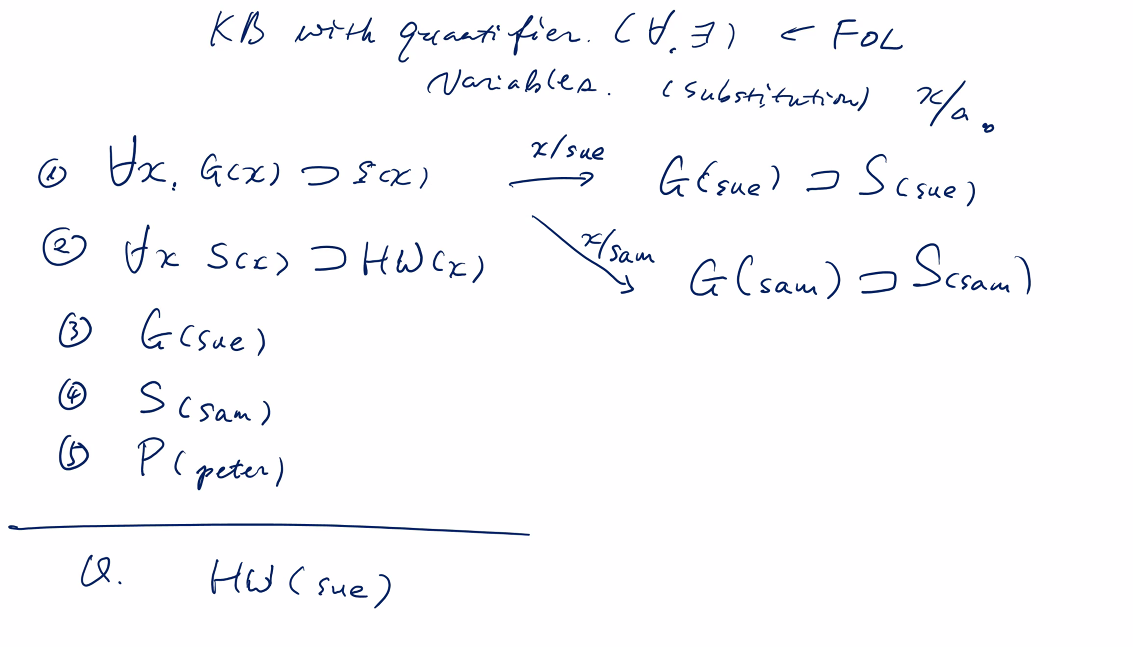 KB with quantifier. (∀.∃) ← FOL
Variables. (substitution) x/a.
① ∀x. G(x) ⊃ S(x) x/sue → G(sue) ⊃ S(sue)
x/sam → G(sam) ⊃ S(sam)
② ∀x S(x) ⊃ HW(x)
③ G(sue)
④ S(sam)
⑤ P(peter)
Q. HW(sue)